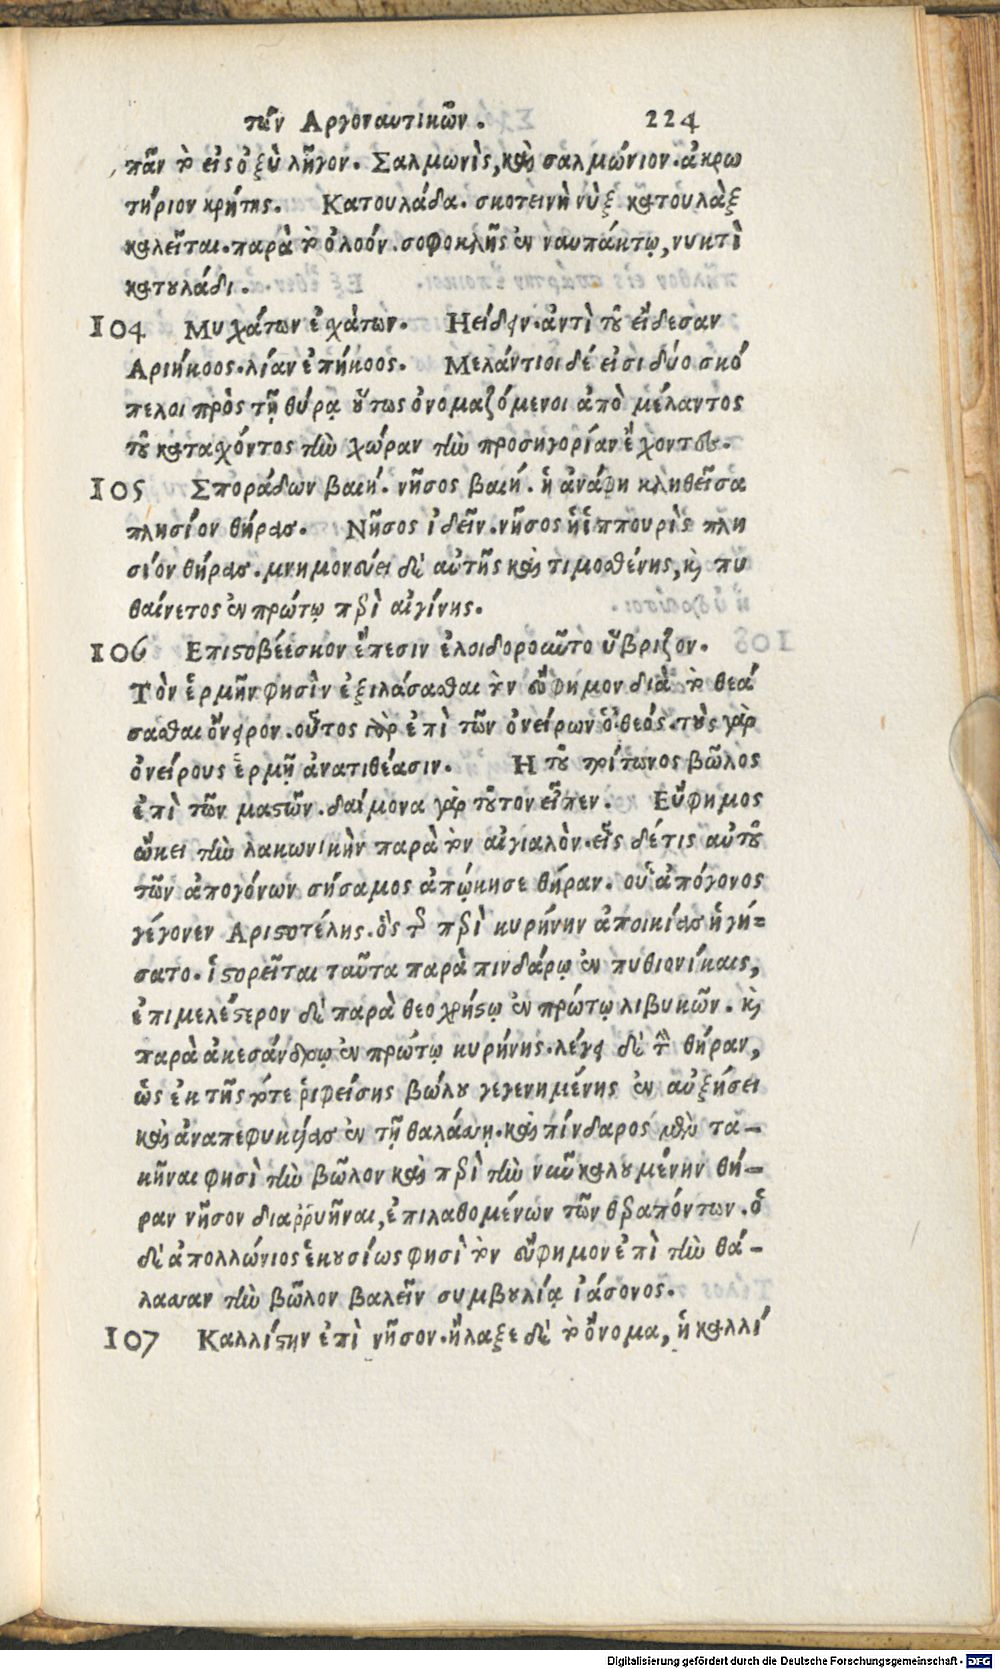 τῶν Αργοναυτικῶν. 224
πᾶν τὸ εἰς ὀξὺ λῆγον. Σαλμωνὶς, καὶ σαλμώνιον. ἀκρω
τήριον κρήτης. Κατουλάδα. σκοτεινὴ νὺξ κατουλὰξ
καλεῖται. παρὰ τὸ ὀλοόν. σοφοκλῆς ἐν ναυπάκτῳ, νυκτὶ
κατουλάδι.
104 Μυχάτων ἐχάτων. Ηείδειν. ἀντὶ τοῦ εἴδεσαν
Αριήκοος. λίαν ἐπήκοος. Μελάντιοι δέ εἰσι δύο σκό
πελοι πρὸς τῇ θύρᾳ οὕτως ὀνομαζόμενοι ἀπὸ μέλαντος
τοῦ καταχόντος τὴν χώραν τὴν προσηγορίαν ἔχοντες.
105 Σποράδων βαιή. νῆσος βαιή. ἡ ἀνάφη κληθεῖσα
πλησίον θήρας. Νῆσος ἰδεῖν. νῆσος ἡ ἱππουρὶς πλη
σίον θήρας. μνημονεύει δὲ αὐτῆς καὶ τιμοσθένης, καὶ πυ
θαίνετος ἐν πρώτῳ περὶ αἰγίνης.
106 Επιστοβέεσκον ἔπεσιν ἐλοιδοροῦντο ὕβριζον.
Τὸν ἑρμῆν φησὶν ἐξιλάσασθαι τὸν εὔφημον διὰ τὸ θεά
σασθαι ὄνειρον. οὗτος γὰρ ἐπὶ τῶν ὀνείρων ὁ θεός. τοὺς γὰρ
ὀνείρους ἑρμῇ ἀνατιθέασιν. Η τοῦ τρίτωνος βῶλος
ἐπὶ τῶν μαστῶν. δαίμονα γὰρ τοῦτον εἶπεν. Εὔφημος
ᾤκει τὴν λακωνικὴν παρὰ τὸν αἰγιαλὸν. εἷς δέ τις αὐτοῦ
τῶν ἀπογόνων σήσαμος ἀπῴκησε θήραν. οὗ ἀπόγονος
γέγονεν Αριστοτέλης. ὃς τῆς περὶ κυρήνην ἀποικίας ἡγή=
σατο. ἱστορεῖται ταῦτα παρὰ πινδάρῳ ἐν πυθιονίκαις,
ἐπιμελέστερον δὲ παρὰ θεοχρήστῳ ἐν πρώτῳ λιβυκῶν. καὶ
παρὰ ἀκεσάνδρῳ ἐν πρώτῳ κυρήνης. λέγει δὲ τὴν θήραν,
ὡς ἐκ τῆς τότε ῥιφείσης βώλου γεγενημένης ἐν αὐξήσει
καὶ ἀναπεφυκυίας ἐν τῇ θαλάσσῃ. καὶ πίνδαρος μὲν τα-
κῆναι φησὶ τὴν βῶλον καὶ περὶ τὴν νῦν καλουμένην θή-
ραν νῆσον διαῤῥυῆναι, ἐπιλαθομένων τῶν θεραπόντων. ὁ
δὲ ἀπολλώνιος ἑκουσίως φησὶ τὸν εὔφημον ἐπὶ τὴν θά-
λασσαν τὴν βῶλον βαλεῖν συμβουλίᾳ ἰάσονος.
107 Καλλίστην ἐπὶ νῆσον. ἤλαξε δὲ τὸ ὄνομα, ἡ καλλί
Digitalisierung gefördert durch die Deutsche Forschungsgemeinschaft - DFG